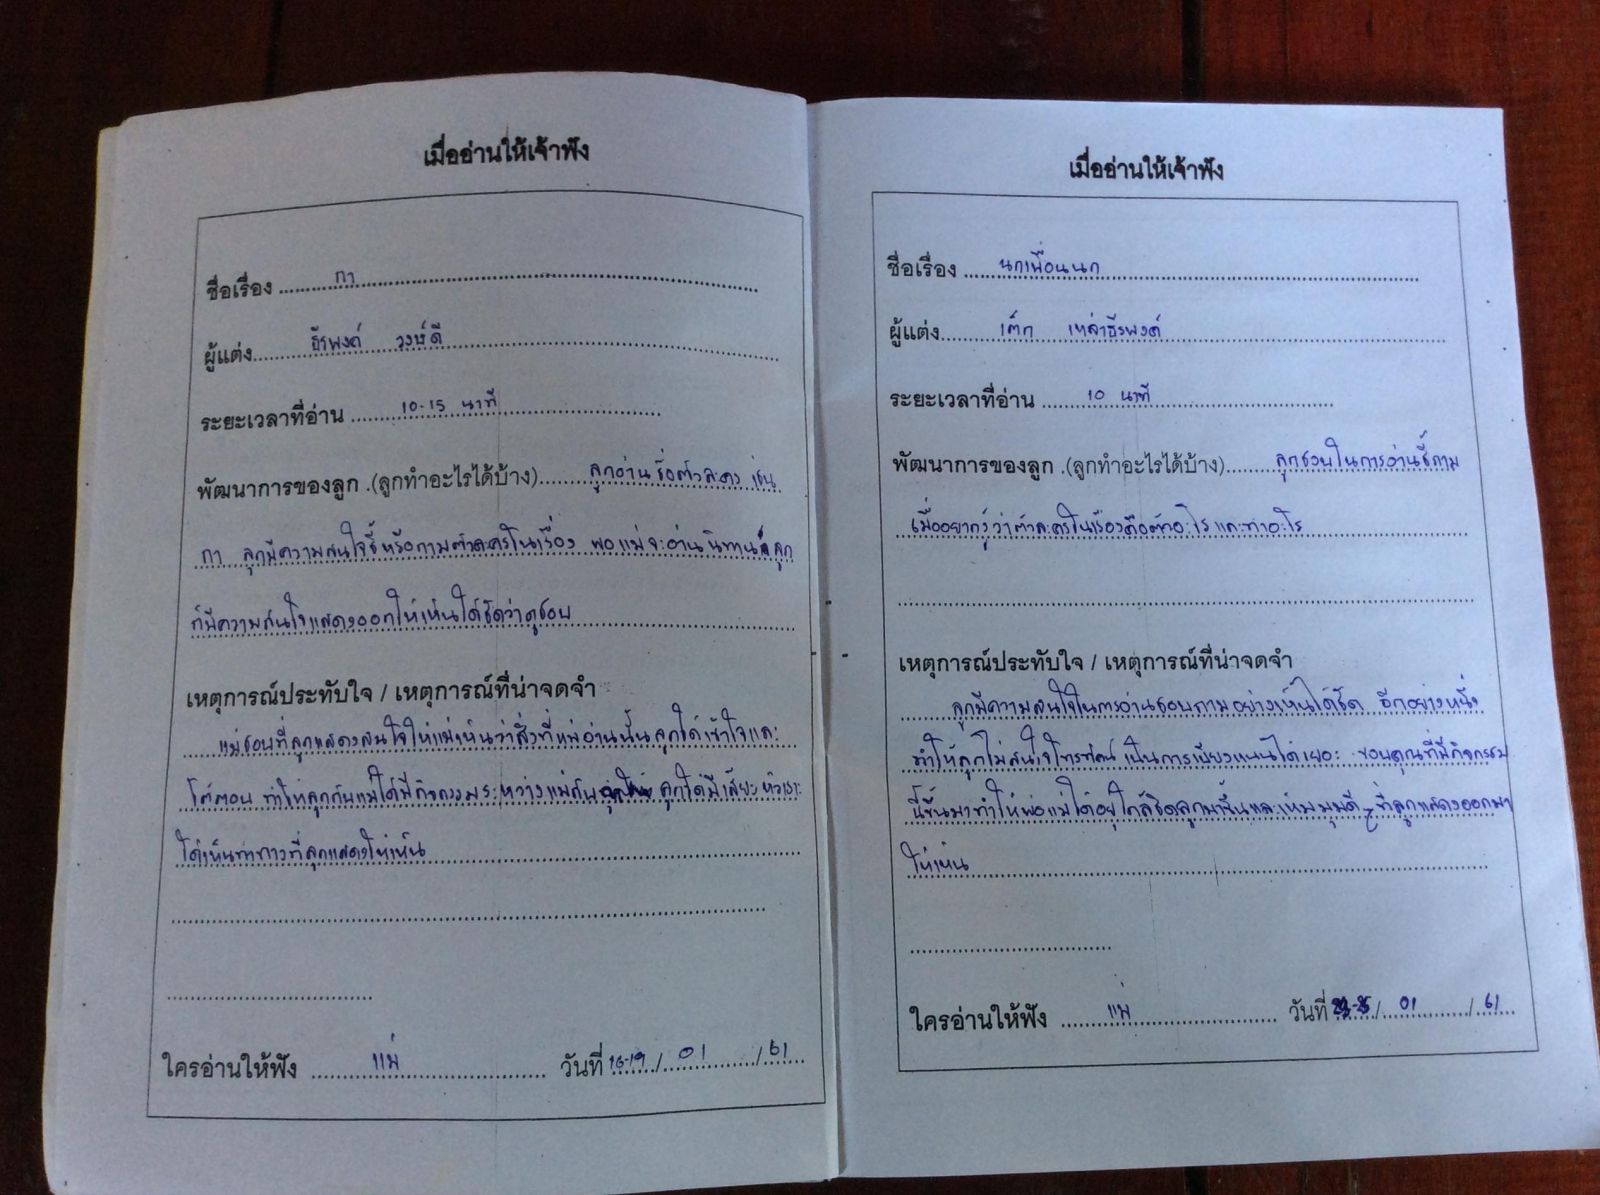 เมื่ออ่านให้เจ้าฟัง
ชื่อเรื่อง กา
ผู้แต่ง ธีรพงค์ วงษ์ดี
ระยะเวลาที่อ่าน 10-15 นาที
พัฒนาการของลูก .(ลูกทำอะไรได้บ้าง) ลูกอ่านชื่อตัวละคร เช่น
กา ลูกมีความสนใจชี้หรือถามตัวละครในเรื่อง พอแม่จะอ่านนิทาน ลูก
ก็มีความสนใจแสดงออกให้เห็นได้ชัดว่าลูกชอบ
เหตุการณ์ประทับใจ / เหตุการณ์ที่น่าจดจำ
แม่ชอบที่ลูกแสดงสนใจให้แม่เห็นว่าสิ่งที่แม่อ่านนั้นลูกได้เข้าใจและ
โต้ตอบ ทำให้ลูกกับแม่ได้มีกิจกรรมระหว่างแม่กับ ลูกได้มีเสียงหัวเราะ
ได้เห็นท่าทางที่ลูกแสดงให้เห็น
ใครอ่านให้ฟัง แม่ วันที่ 16-19 / 01 / 61
เมื่ออ่านให้เจ้าฟัง
ชื่อเรื่อง นกเพื่อนนก
ผู้แต่ง เต็ก เหล่าธีรพงค์
ระยะเวลาที่อ่าน 10 นาที
พัฒนาการของลูก .(ลูกทำอะไรได้บ้าง) ลูกชวนในการอ่านชี้ถาม
เมื่ออยากรู้ว่าตัวละครในเรื่องคือตัวอะไรและทำอะไร
เหตุการณ์ประทับใจ / เหตุการณ์ที่น่าจดจำ
ลูกมีความสนใจในการอ่านชอบถามอย่างเห็นได้ชัด อีกอย่างหนึ่ง
ทำให้ลูกไม่สนใจโทรทัศน์ เป็นการเบี่ยงเบนได้เยอะ ขอบคุณที่มีกิจกรรม
นี้ขึ้นมาทำให้พ่อแม่ได้อยู่ใกล้ชิดลูกมาขึ้นและเห็นมุมดีๆ ที่ลูกแสดงออกมา
ให้เห็น
ใครอ่านให้ฟัง แม่ วันที่ / 01 / 61